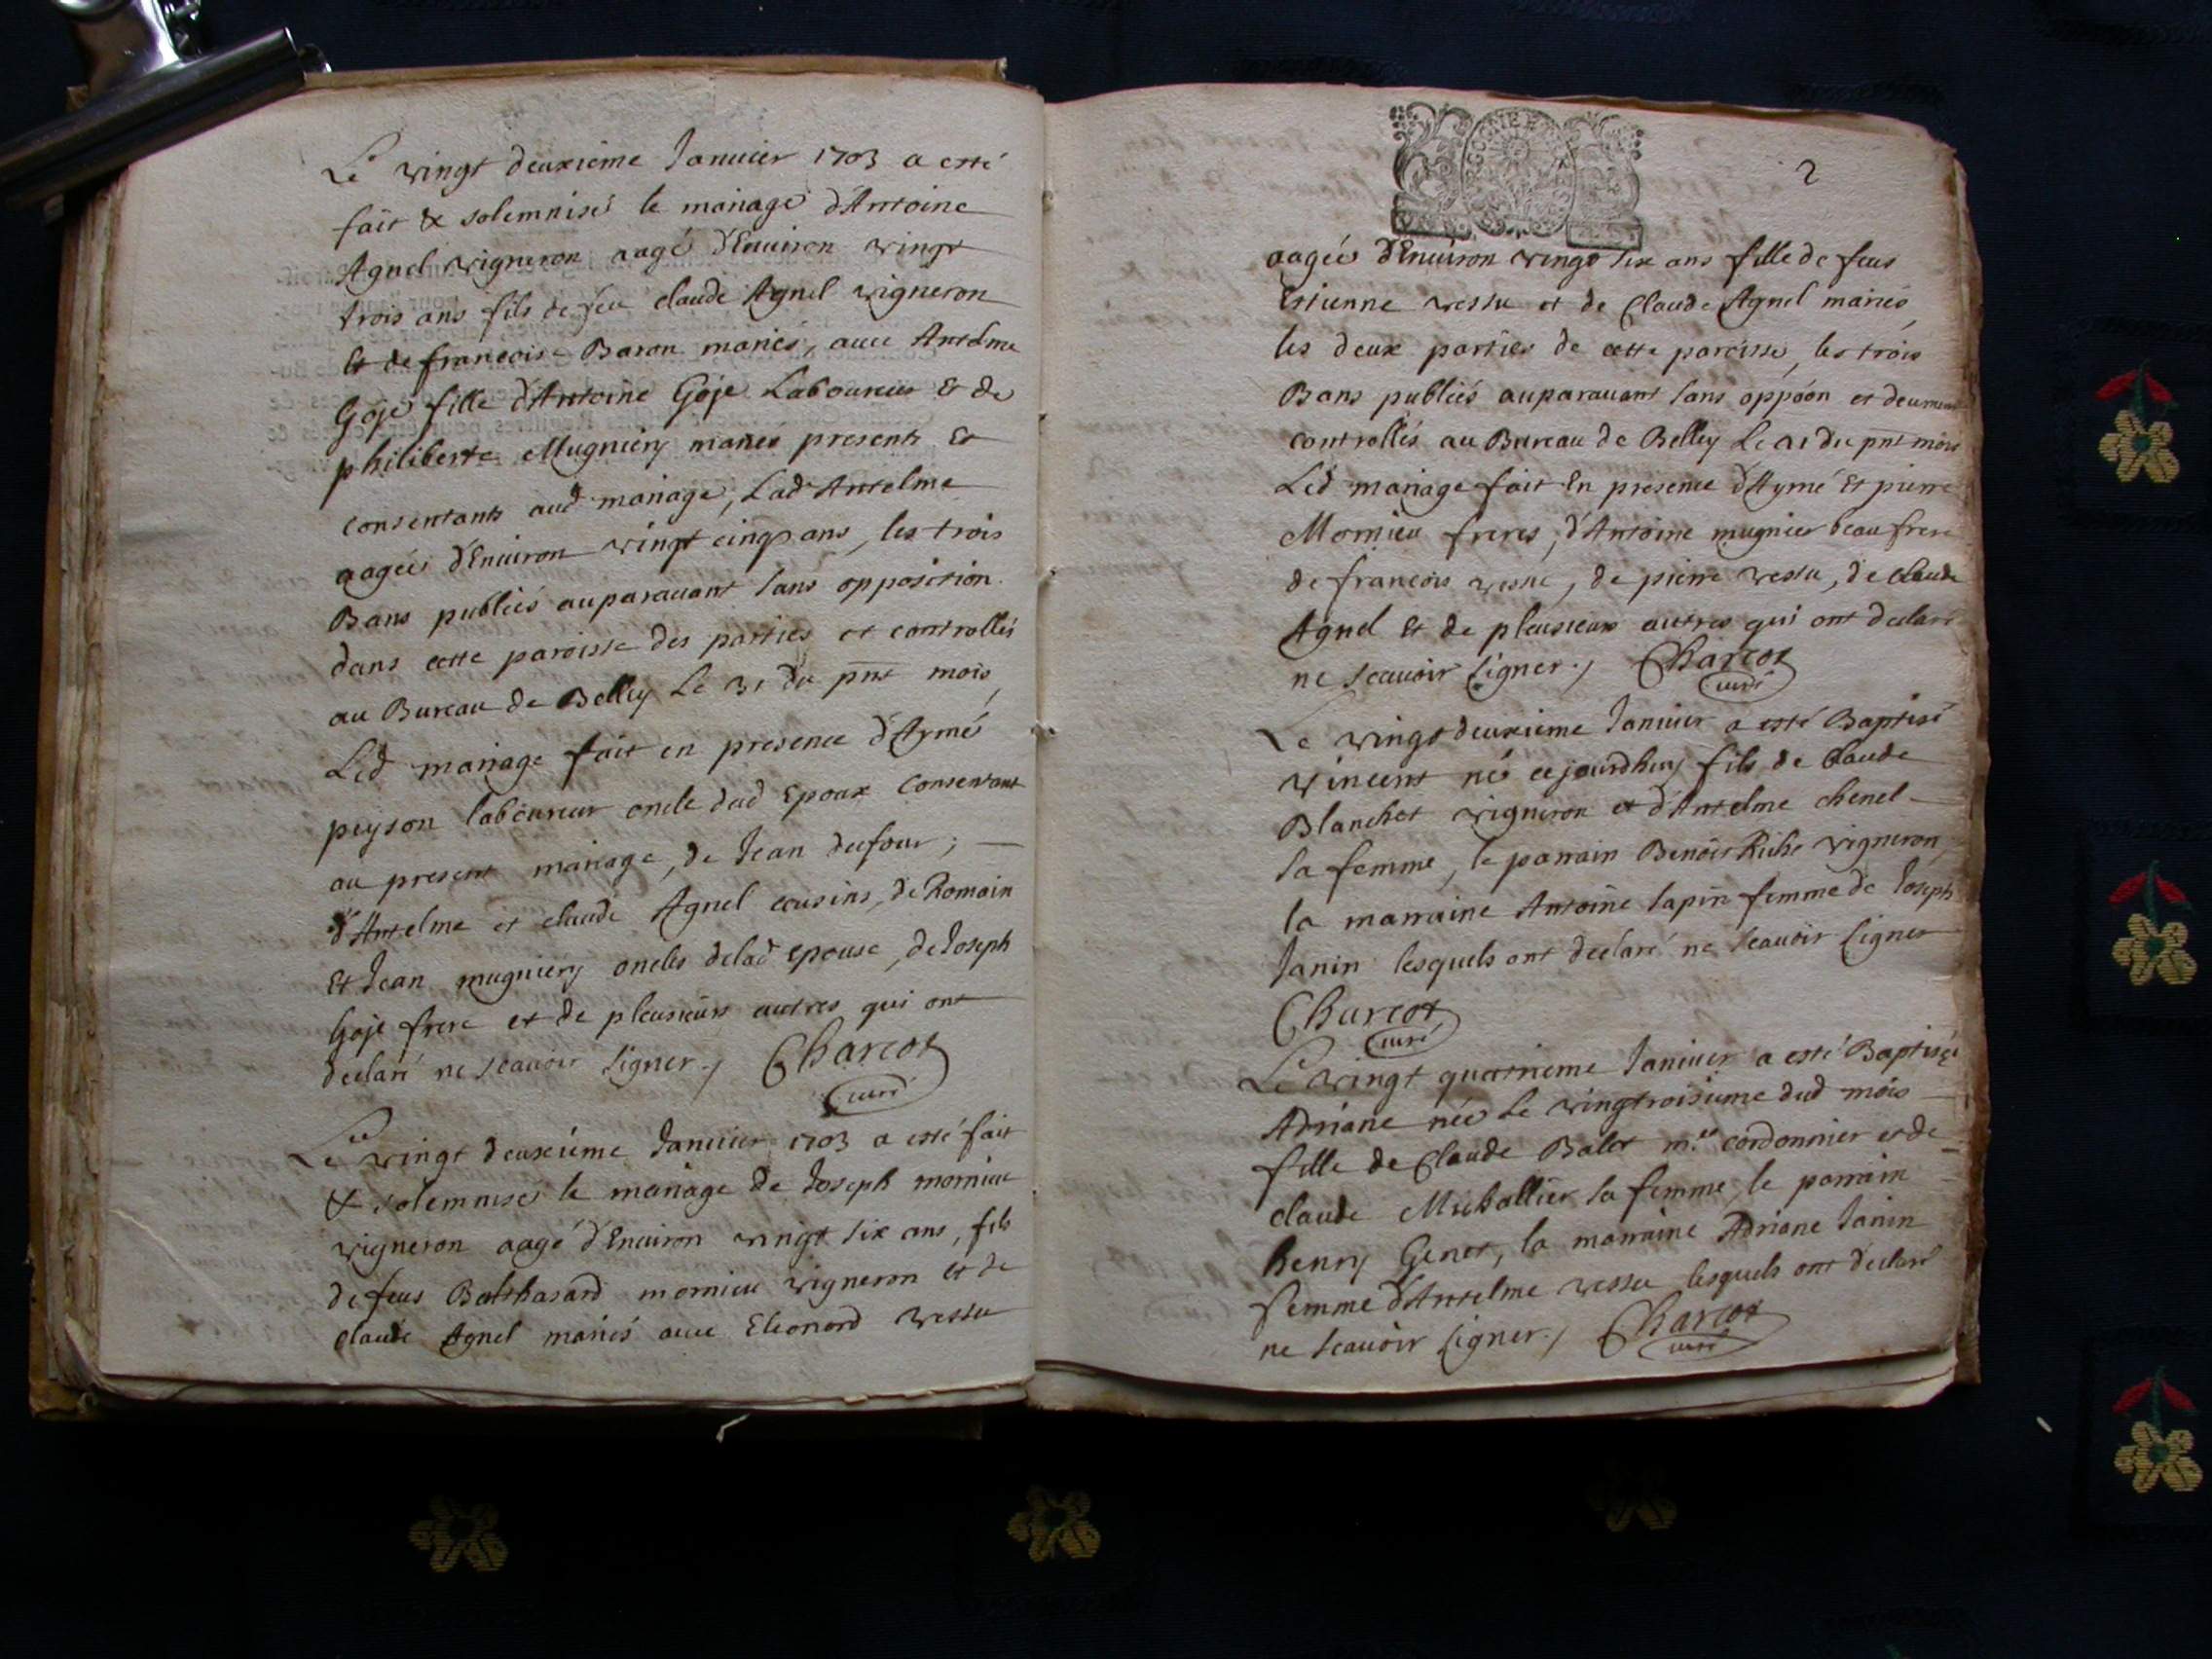 Le vingt deuxiéme Januier 1703 a esté
fait & solemnisé le mariage d'Antoine
Agnel vigneron aagé d'Enuiron vingt
trois ans fils de feu claude Agnel vigneron
Et de francoise Baron mariés, auec Antelme
Goje fille d'Antoine Goje Laboureur Et de
philiberte Mugniery mariés presents Et
consentants aud mariage, Lad Antelme
aagée d'Enuiron vingt cinq ans, les trois
Bans publiés auparauant sans opposition
dans cette paroisse des parties et controllés
au Bureau de Belley Le 21 du pnt mois,
Led mariage fait en presence d'Aymé
peyson laboureur oncle dud Epoux Consentant
au present mariage, de Jean dufour;
d'Antelme et claude Agnel cousins, de Romain
Et Jean mugniery oncles delad epouse, de Joseph
Goje frere et de pleusieurs autres qui ont
declaré ne scauoir signer./ Charcot
curé
Le vingt deuxiéme Januier 1703 a esté fait
& solemnisé le mariage de Joseph mornieu
vigneron aagé d'Enuiron vingt six ans, fils
de feus Balthasard mornieu vigneron et de
claude Agnel mariés auec Eleonord vessu
2
aagée d'Enuiron vingt six ans fille de feus
Estienne vessu et de Claude Agnel mariés,
les deux parties de cette paroisse, les trois
Bans publiés auparauant sans oppoon et deument
controllés au Bureau de Belley Le 21 du pnt mois
Led mariage fait En presence d'Aymé Et pierre
Mornieu freres, d'Antoine mugnier beau frere
de francois vessu, de pierre vessu, de claude
Agnel Et de pleusieurs autres qui ont declaré
ne scauoir signer./ Charcot
curé
Le vingt deuxieme Januier a esté Baptisé
vincent né cejourdhuy fils de claude
Blanchet vigneron et d'Antelme chenel
sa femme, le parrain Benoist Riche vigneron,
la marraine Antoine sapin femme de Joseph
Janin lesquels ont declaré ne scauoir signer
Charcot
curé
Le vingt quatrieme Januier a esté Baptisée
Adriane née Le vingtroisieme dud mois
fille de Claude Balet m.re cordonnier et de
claude Michallier sa femme, le parrain
henry Genet, la marraine Adriane Janin
femme d'Antelme vessu lesquels ont declaré
ne scauoir signer./ Charcot
curé